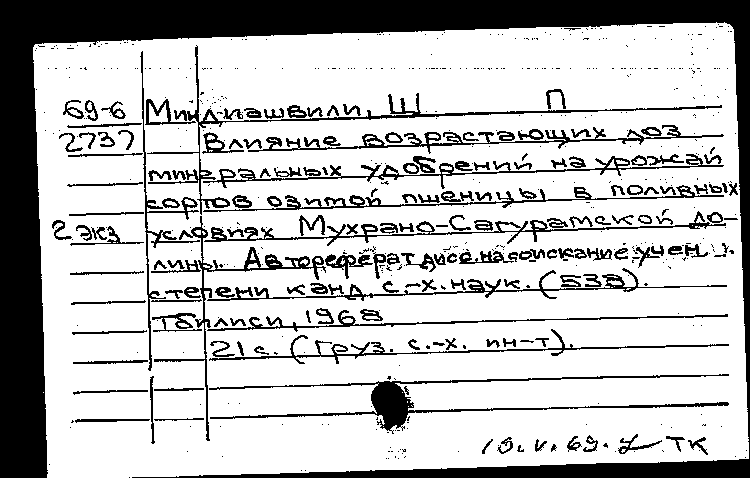 69-6 Миндиашвили, Ш П
2737 Влияние возрастающих доз
минеральных удобрений на урожай
сортов озимой пшеницы в поливных
2 экз условиях Мухрано-Сагурамской до-
лины. Автореферат дисс. на соискание учен.
степени канд. с.-х. наук. (538).
Тбилиси, 1968.
21 с. (Груз. с.-х. ин-т).
10.V.69. ТК